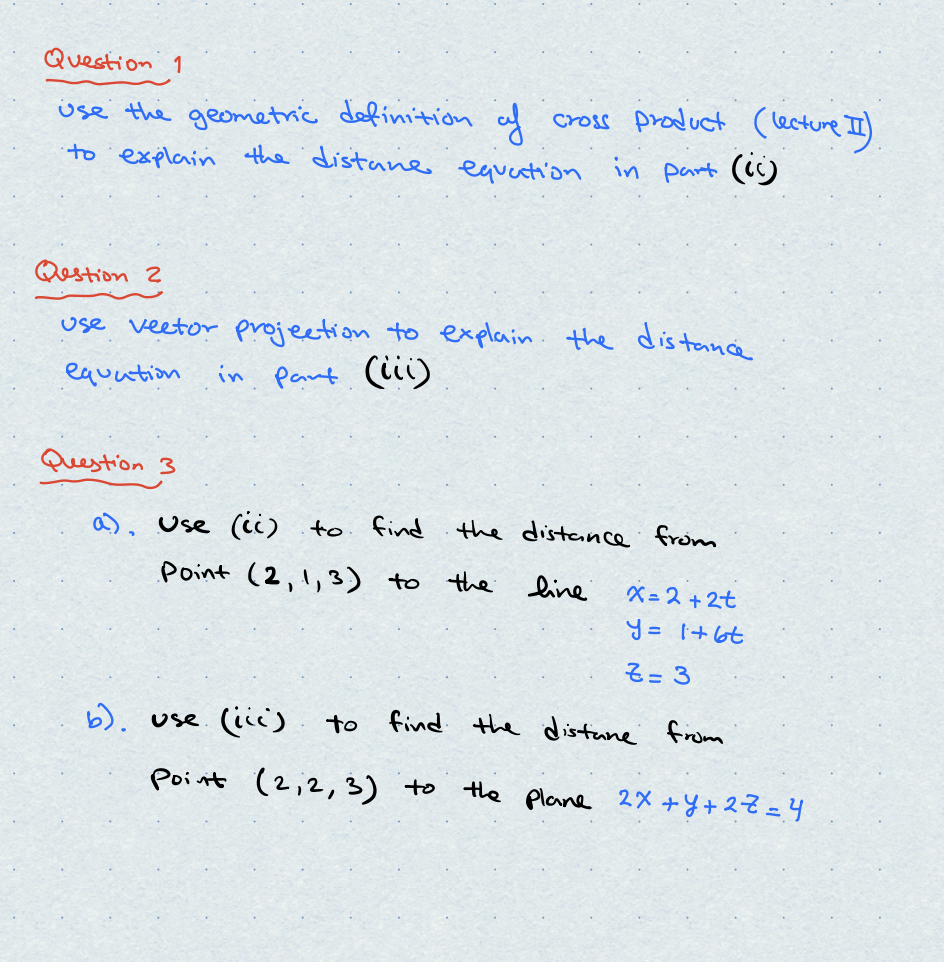 Question 1
use the geometric definition of cross product (lecture II)
to explain the distane equation in part (ii)
Qestion 2
use vector projection to explain the distance
equation in part (iii)
Question 3
a). Use (ii) to find the distance from
Point (2,1,3) to the line x=2+2t
y= 1+6t
z= 3
b). use (iii) to find the distane from
Point (2,2,3) to the plane 2x+y+2z=4